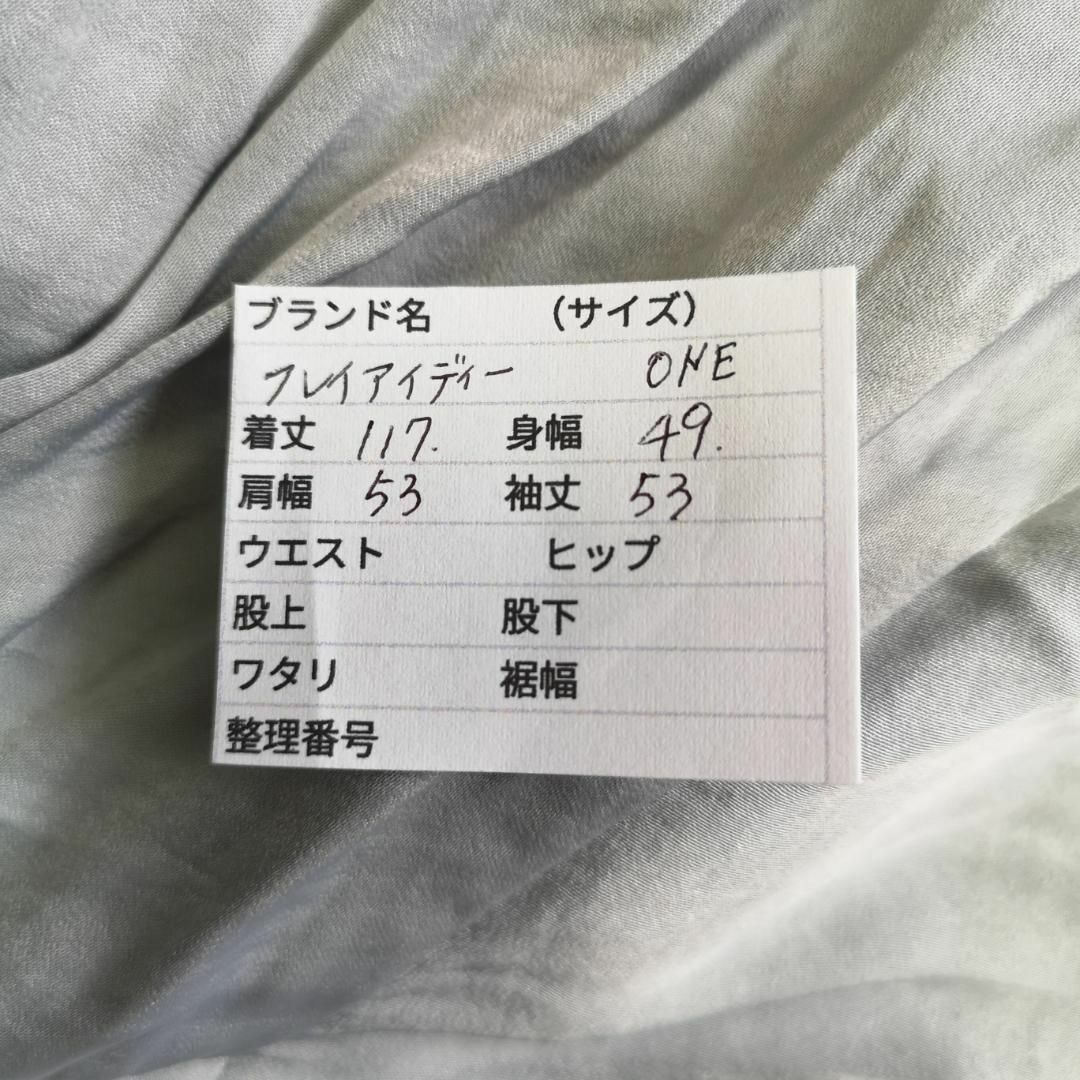 ブランド名 （サイズ）
フレイアイディー ONE
着丈 117. 身幅 49.
肩幅 53 袖丈 53
ウエスト ヒップ
股上 股下
ワタリ 裾幅
整理番号